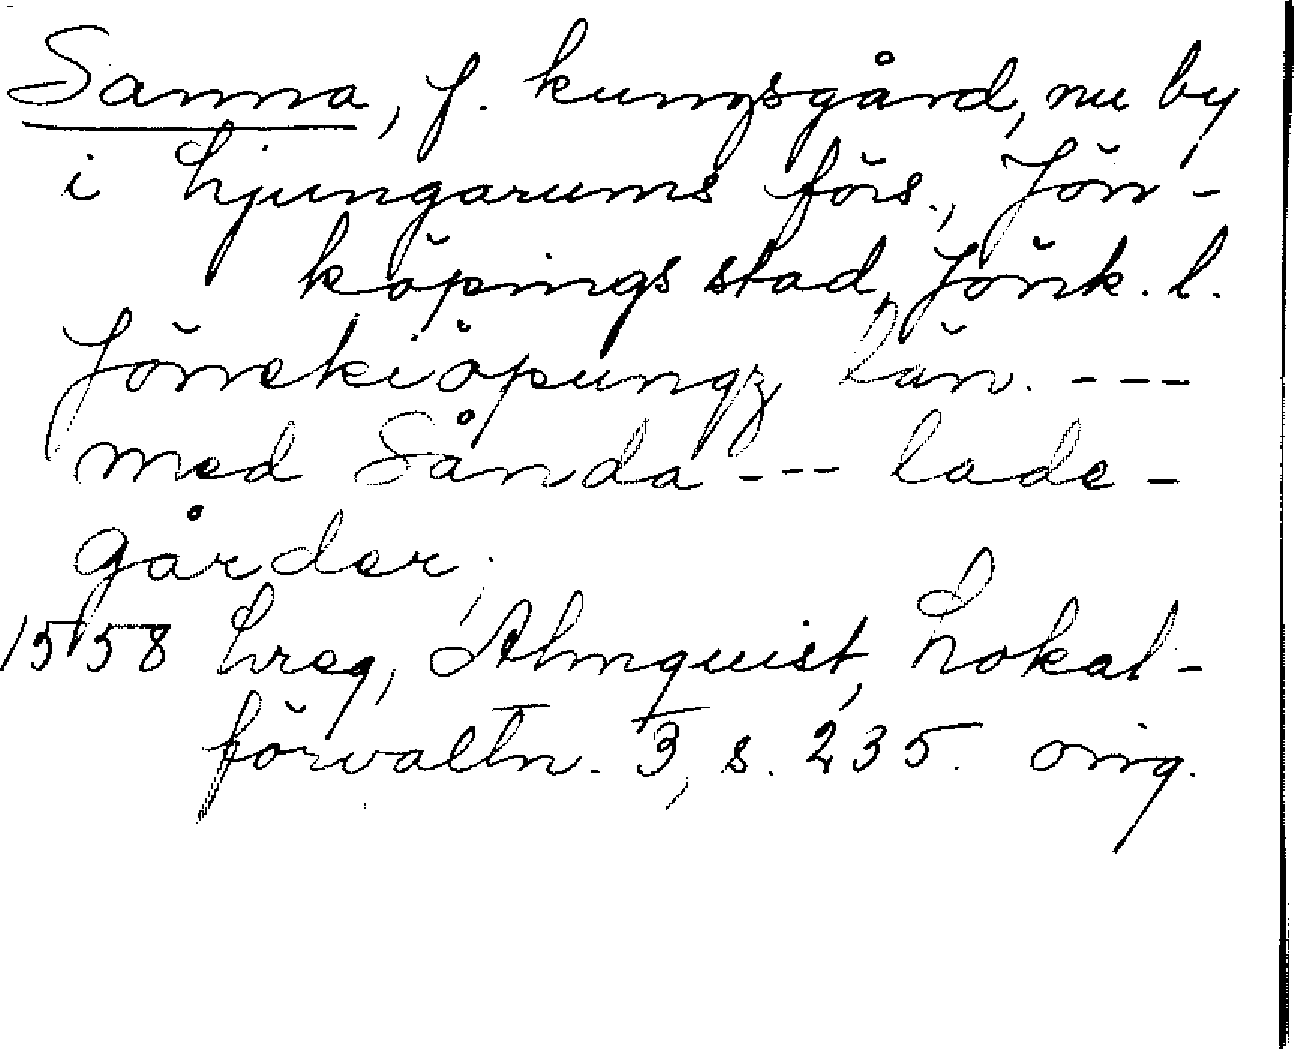 Sanna, f. kungsgård, nu by
i Ljungarums förs., Jön-
köpings stad, Jönk. l.
Jönekiöpungz län. ---
med Sånda --- lade-
gårder,
1558 Lreg, Almquist, Lokal-
förvaltn. 3, s. 235. orig.